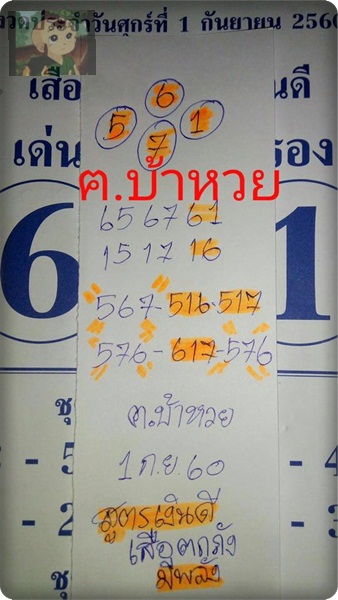 งวดประจำวันศุกร์ที่ 1 กันยายน 256
เสือ
นดี
6
5 1
7
เด่น
รอง
ฅ.บ้าหวย
65 67 61
15 17 16
6
1
567-516-517
576-617-576
ชุ
ฅ.บ้าหวย
- 5
- 4
1 ก.ย. 60
- 2
- 3
สูตรเงินดี
เสือตกถัง
มีพลัง
ชุ